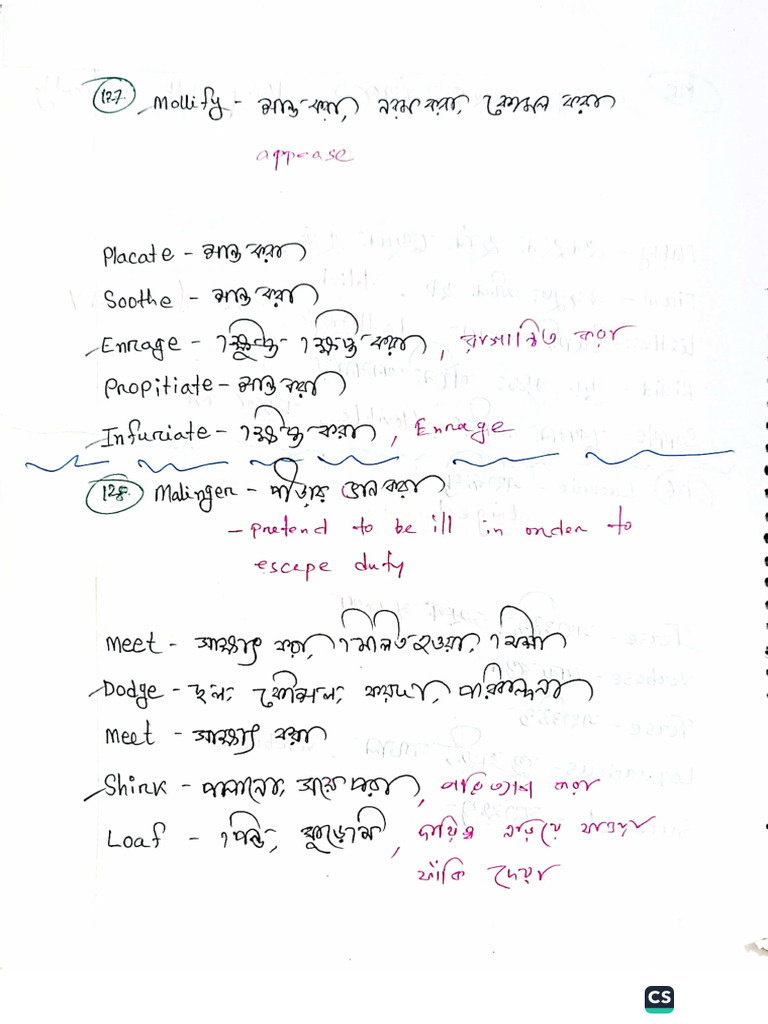 127. Mollify - শান্ত করা, নরম করা, কোমল করা
appease
Placate - শান্ত করা
Soothe - শান্ত করা
Enrage - ক্ষিপ্ত করা, রাগান্বিত করা
Propitiate - শান্ত করা
Infuriate - ক্ষিপ্ত করা, Enrage
128. Malinger - পীড়ার ভান করা
- pretend to be ill in order to
escape duty
Meet - সাক্ষাৎ করা, মিলিত হওয়া,
Dodge - ছল, কৌশল,
Meet - সাক্ষাৎ করা
Shirk - পালানো, সরে পরা, পরিত্যাগ করা
Loaf - পিন্ড, কুড়েমী, দায়িত্ব এড়িয়ে যাওয়া
ফাঁকি দেয়া
CS